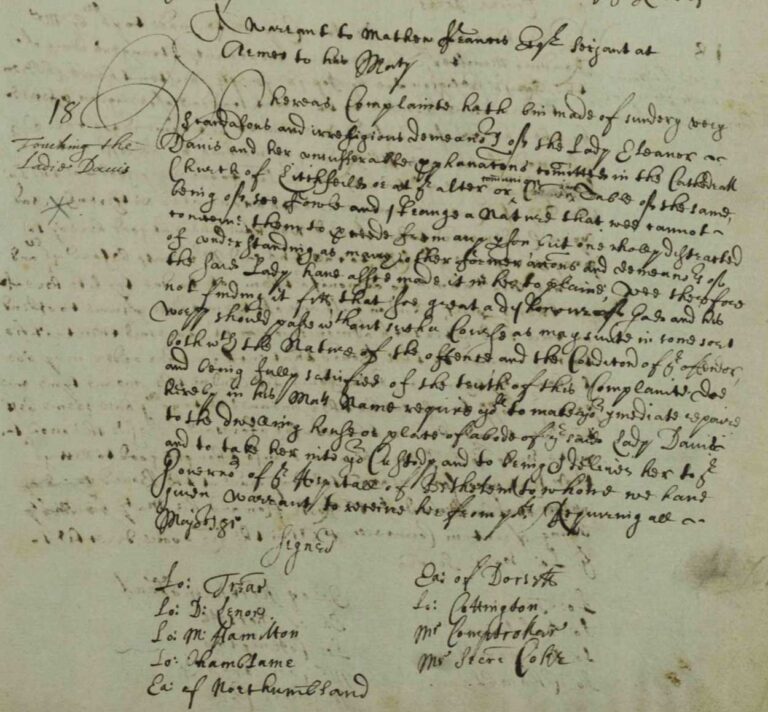 A warrant to Mathew Francis Esqr. Serjant at
Armes to his Maty
18
Touching the
Ladie Davis
Whereas Complainte hath bin made of sundry very
scandalous and irreligious demeanors of the Lady Eleanor
Davis and her unsufferable prphanations comitted in the Cathedrall
Church of Litchfeild or at ye alter or communion Table of the same,
being of soe fowle and strange a Nature that wee cannot
conceive them to procede from any pson but one wholy distracted
of understanding, as many other former accons and demeanors of
the said Lady have also made it in her to plaine, Wee therefore
not finding it fitt that soe great a dishonour of God and his
worpp should passe without such a Course as may suite in some sort
both wth the Nature of the offence and the Condicion of ye offendor,
and being fully satisfied of the truth of this Complainte, doe
hereby in his Mats Name require you to make yor ymediate repaire
to the dwelling house or place of abode of ye said Lady Davis
and to take her into yor Custody, and to bring & deliver her to ye
Governor of ye Hospitall of Bethelem to whome we have
given warrant to receive her from you, Requiring all
Majors &c
Signed
Lo: Trēar.
Lo: D: Lenox
Lo: M: Hamilton
Lo: Chamblaine
Ea: of Northumbland
Ea: of Dorsett
Lo: Cottington
Mr Comptroller
Mr Secre Coke